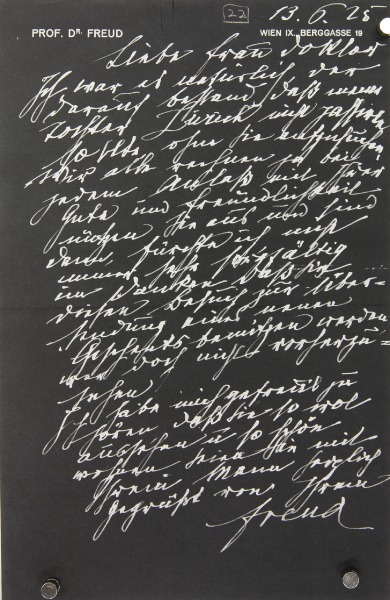 22
13. 6. 25
PROF. DR. FREUD
WIEN IX., BERGGASSE 19
Liebe Frau Doktor
Ich war es natürlich der
darauf bestand, daß meine
Tochter Zürich nicht passiren
sollte ohne Sie aufzusuchen
Wir alle rechnen ja bei
jedem Anlaß mit Ihrer
Güte und Freundlichkeit
nützen Sie aus und sind
dann, fürchte ich nicht
immer sehr sorgfältig
im Danken. Daß sie
diesen Besuch zur Über-
sendung eines neuen
Geschenks benützen werden
war doch nicht vorherzu=
sehen
Ich habe mich gefreut zu
hören daß Sie so wol
aussehen u so schön
wohnen. Seien Sie mit
Ihrem Mann herzlich
gegrüßt von Ihrem
Freud